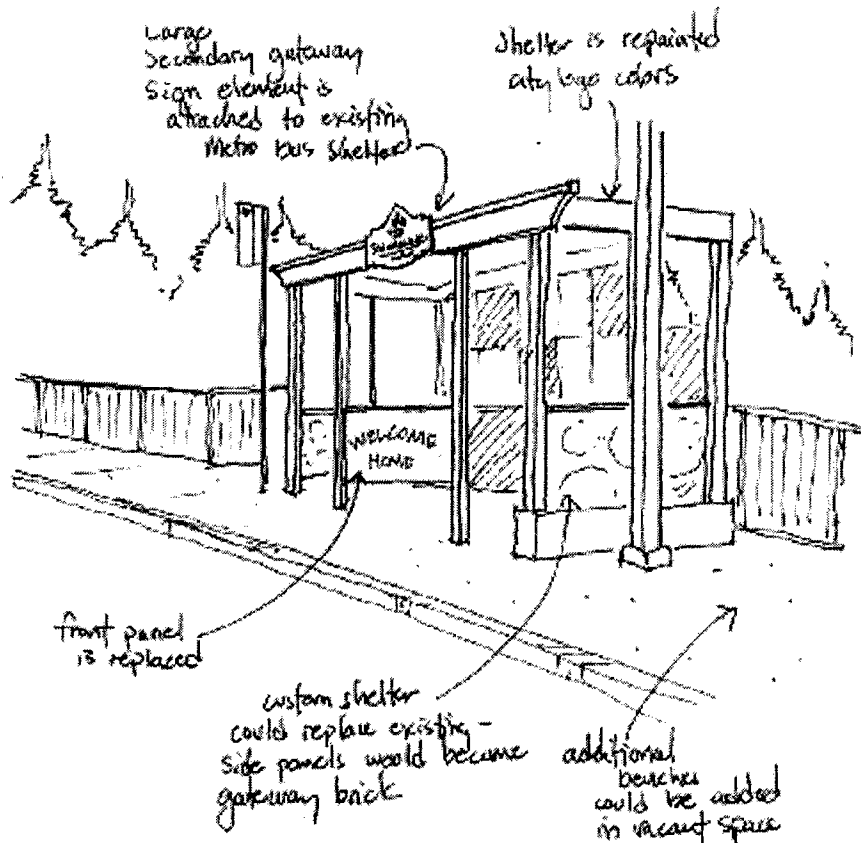 Large
Secondary gateway
Sign element is
attached to existing
Metro bus shelter
Shelter is repainted
city logo colors
WELCOME
HOME
front panel
is replaced
custom shelter
could replace existing –
side panels would become
gateway brick
additional
benches
could be added
in vacant space